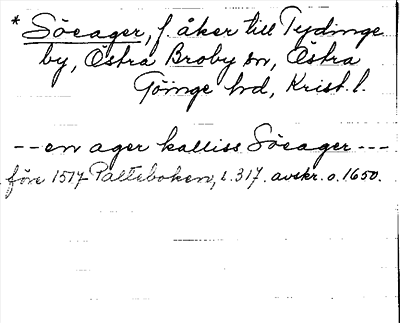 * Söeager, f. åker till Tydinge
by, Östra Broby sn, Östra
Göinge hd, Krist. l.
-- en ager kalliss Söeager ---
före 1517 Palteboken, s. 317. avskr. o. 1650.